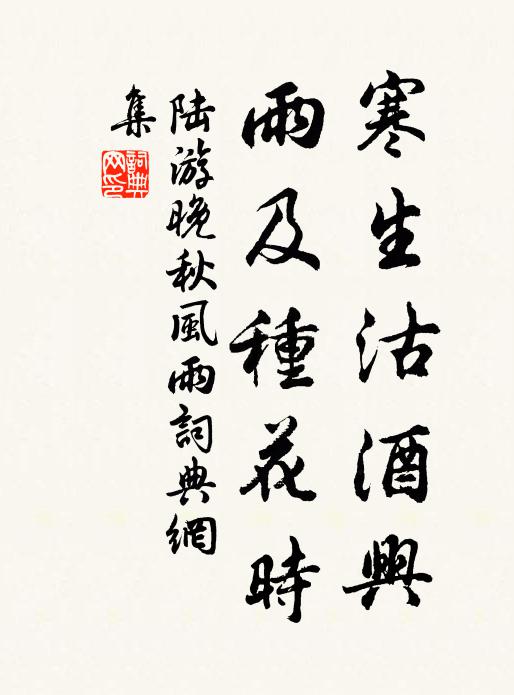 寒生沽酒興
雨及種花時
陸游晚秋風雨詞典網
集
詞典
网印